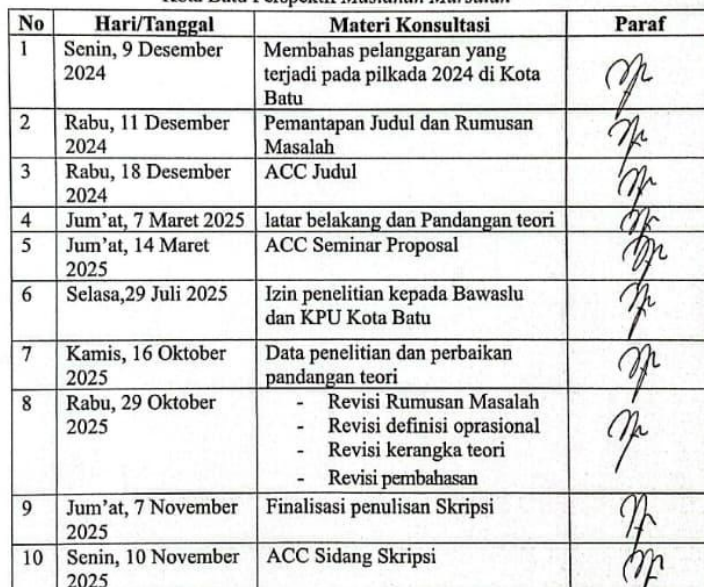 Kota Batu Perspektif Maslahah Mursalah
No Hari/Tanggal Materi Konsultasi Paraf
1 Senin, 9 Desember Membahas pelanggaran yang
2024 terjadi pada pilkada 2024 di Kota
Batu
2 Rabu, 11 Desember Pemantapan Judul dan Rumusan
2024 Masalah
3 Rabu, 18 Desember ACC Judul
2024
4 Jum'at, 7 Maret 2025 latar belakang dan Pandangan teori
5 Jum'at, 14 Maret ACC Seminar Proposal
2025
6 Selasa,29 Juli 2025 Izin penelitian kepada Bawaslu
dan KPU Kota Batu
7 Kamis, 16 Oktober Data penelitian dan perbaikan
2025 pandangan teori
8 Rabu, 29 Oktober - Revisi Rumusan Masalah
2025 - Revisi definisi oprasional
- Revisi kerangka teori
- Revisi pembahasan
9 Jum'at, 7 November Finalisasi penulisan Skripsi
2025
10 Senin, 10 November ACC Sidang Skripsi
2025